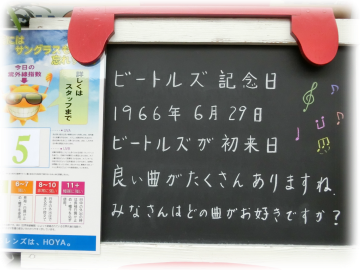 くは
サングラス
今日の
紫外線指数
詳しくは
スタッフまで
5
6~7
8~10
11+
レンズは、HOYA。
ビートルズ記念日
1966年6月29日
ビートルズが初来日
良い曲がたくさんありますね。
みなさんはどの曲がお好きですか?